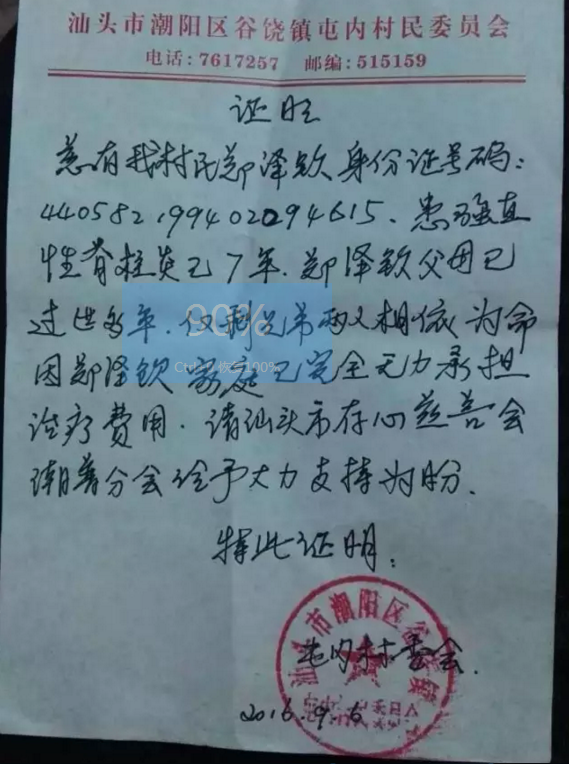 汕头市潮阳区谷饶镇屯内村民委员会
电话:7617257 邮编:515159
证明
兹有我村民郑泽钦身份证号码:
440582199402094615、患强直
性脊柱炎已7年.郑泽钦父母已
过世多年.仅剩兄弟两人相依为命
因郑泽钦家庭已完全无力承担
治疗费用.请汕头市存心慈善会
潮普分会给予大力支持为盼.
特此证明.
汕头市潮阳区谷饶镇
屯内村委会.
2016.9.6
90%
恢复100%